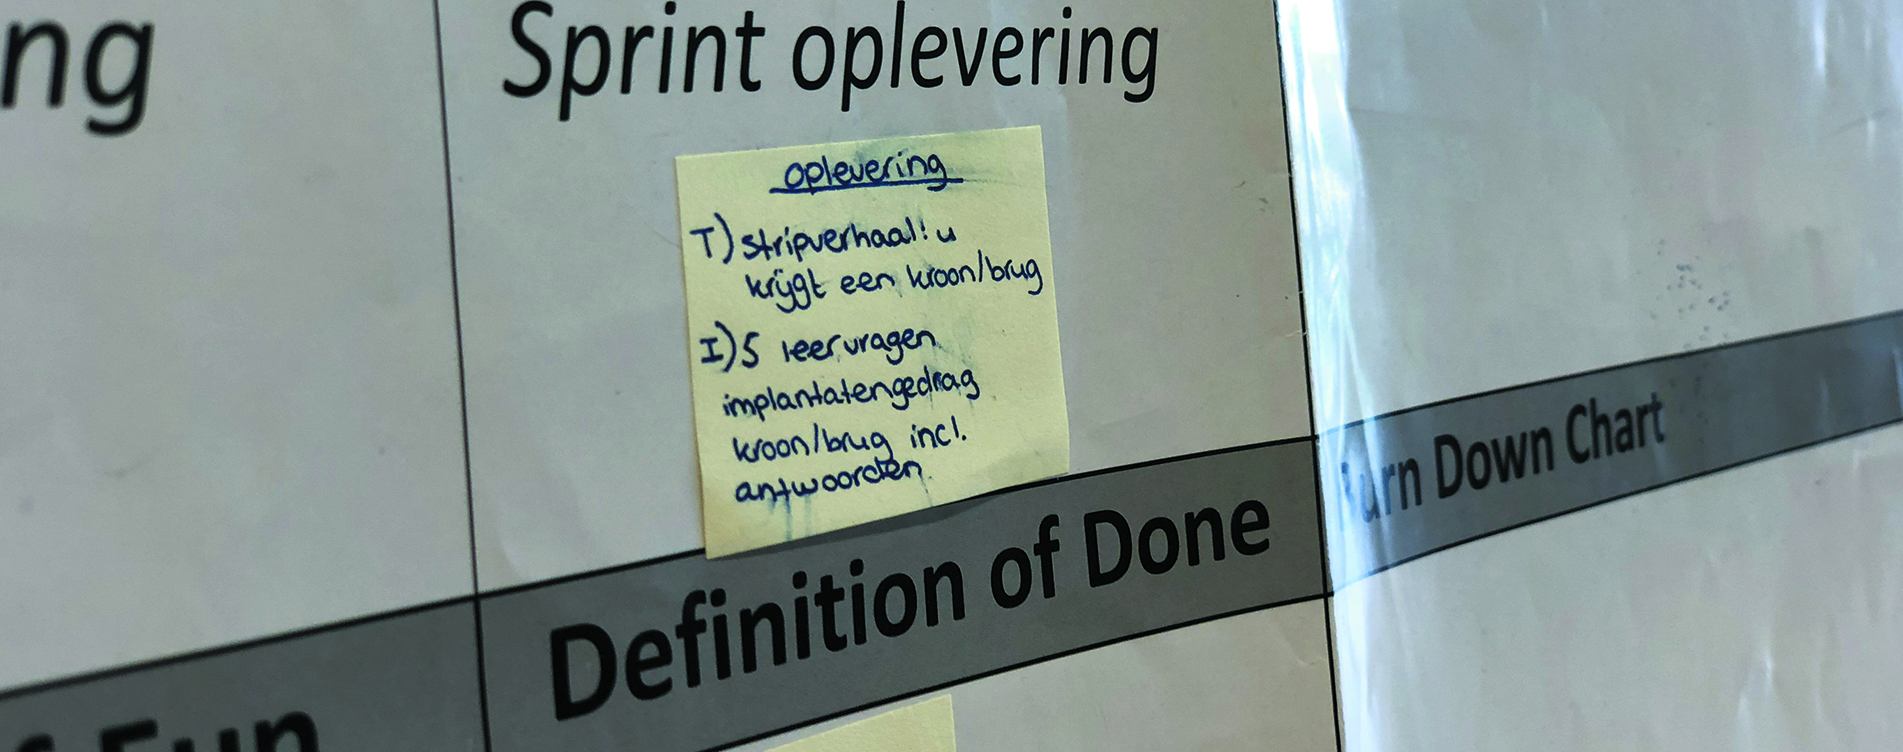 ng
Sprint oplevering
oplevering
T) stripverhaal! u
krijgt een kroon/brug
I) 5 leervragen
implantatengedrag
kroon/brug incl.
antwoorden
Definition of Done
Burn Down Chart
f Fun